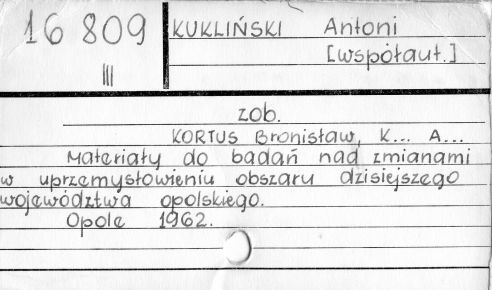 16 809 KUKLIŃSKI Antoni
III [współaut.]
zob.
KORTUS Bronisław, K... A...
Materiały do badań nad zmianami
w uprzemysłowieniu obszaru dzisiejszego
województwa opolskiego.
Opole 1962.